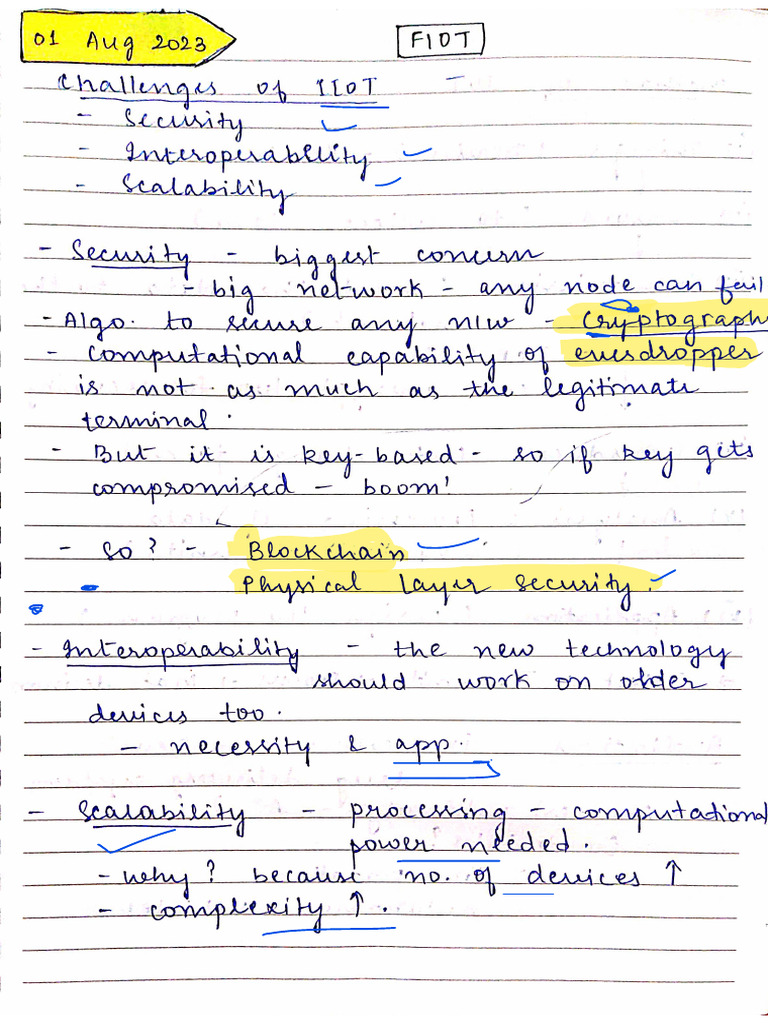 01 Aug 2023
FIOT
Challenges of IIOT
- Security
- Interoperability
- Scalability
- Security - biggest concern
- big network - any node can fail
- Algo. to secure any n/w - Cryptograph
- Computational capability of evesdropper
is not as much as the legitimate
terminal.
- But it is key-based - so if key gets
compromised - boom!
- So? - Blockchain
Physical Layer Security.
- Interoperability - the new technology
should work on older
devices too.
- necessity & app.
- Scalability - processing - computational
power needed.
- why? because no. of devices ↑
- complexity ↑.